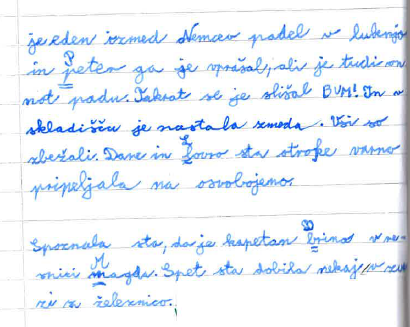 je eden izmed Nemcev padel v lubenjo
in Peter ga je vprašal, ali je tudi on
not padu. Takrat se je slišal BUM! In v
skladišču je nastala zmeda. Vsi so
zbežali. Dane in Lovro sta otroke varno
pripeljala na osvobojeno.
Spoznala sta, da je kapetan Brinos v re-
snici Magda. Spet sta dobila nekaj v zve
zi z železnico.